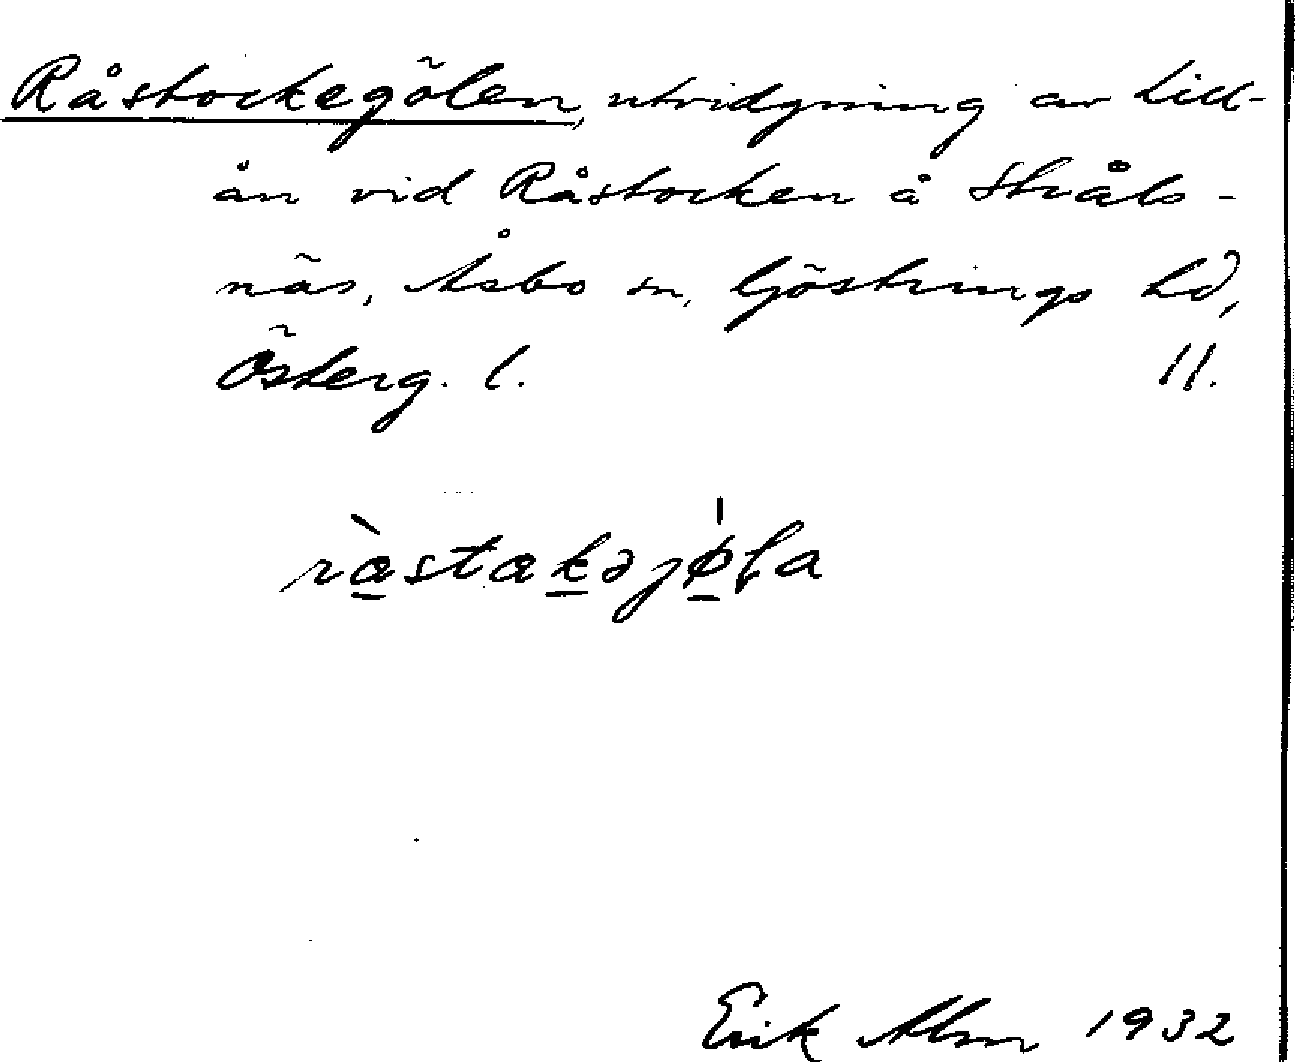 Råstockegölen, utvidgning av Lill-
ån vid Råstocken å Stråls-
näs, Åsbo sn, Göstrings hd,
Österg. l. 11.
ràstakəjø̍la
Erik Alm 1932